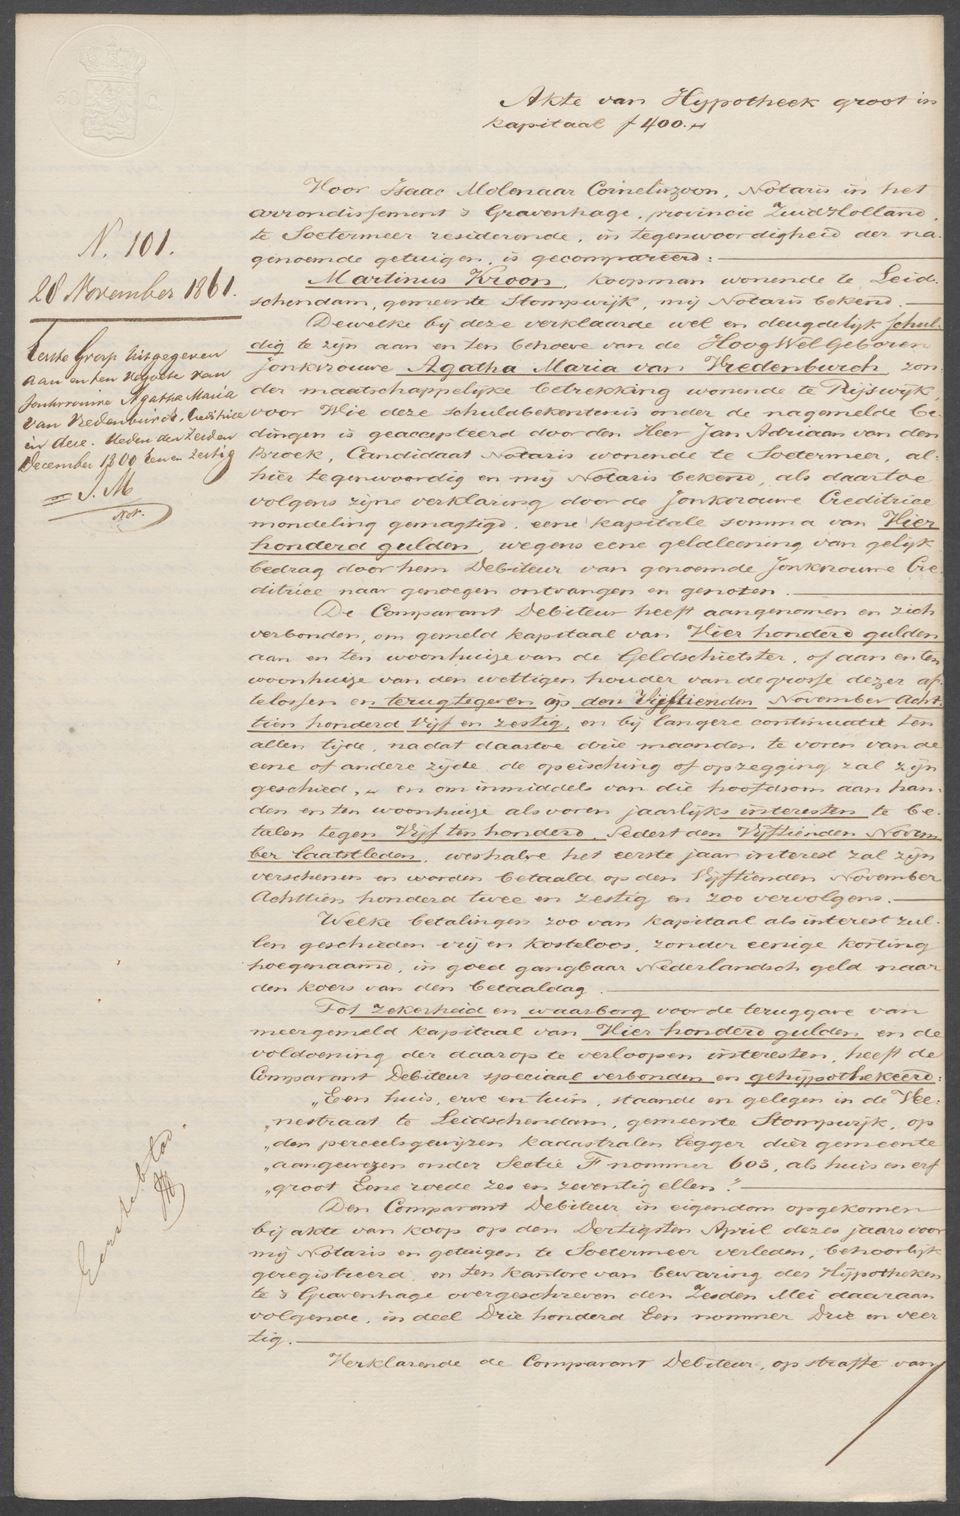 Akte van Hypotheek groot in
kapitaal f 400.-
N. 101.
28 November 1861.
Eerste Grosse uitgegeven
aan en ten behoeve van
Jonkvrouwe Agatha Maria
van Vredenburch, Creditrice
in deze. Heden den Zesden
December 1800 een en zestig
J. M
Not.
Voor Isaac Molenaar Corneliszoon, Notaris in het
arrondissement 's Gravenhage, provincie Zuid Holland,
te Soetermeer residerende, in tegenwoordigheid der na-
genoemde getuigen, is gecompareerd:
Martinus Kroon, koopman wonende te Leid-
schendam, gemeente Stompwijk, mij Notaris bekend.
Dewelke bij deze verklaarde wel en deugdelijk schul-
dig te zijn aan en ten behoeve van de HoogWelGeboren
Jonkvrouwe Agatha Maria van Vredenburch zon-
der maatschappelijke betrekking wonende te Rijswijk,
voor Wie deze schuldbekentenis onder de nagemelde be-
dingen is geaccepteerd door den Heer Jan Adriaan van den
Broek, Candidaat Notaris wonende te Soetermeer, al-
hier tegenwoordig en mij Notaris bekend, als daartoe
volgens zijne verklaring door de Jonkvrouwe Creditrice
mondeling gemagtigd, eene kapitale somma van Vier
honderd gulden, wegens eene geldleening van gelijk
bedrag door hem Debiteur van genoemde Jonkvrouwe Cre-
ditrice naar genoegen ontvangen en genoten.
De Comparant Debiteur heeft aangenomen en zich
verbonden, om gemeld kapitaal van Vier honderd gulden
aan en ten woonhuize van de Geldschietster, of aan en ten
woonhuize van den wettigen houder van de grosse dezer af-
telossen en terugtegeven op den Vijftienden November Acht-
tien honderd Vijf en zestig, en bij langere continuatie ten
allen tijde, nadat daartoe drie maanden te voren van de
eene of andere zijde de opeisching of opzegging zal zijn
geschied, en om inmiddels van die hoofdsom aan han-
den en ten woonhuize als voren jaarlijks interesten te be-
talen tegen Vijf ten honderd, sedert den Vijftienden Novem-
ber laatstleden, weshalve het eerste jaar interest zal zijn
verschenen en worden betaald op den Vijftienden November
Achttien honderd twee en zestig en zoo vervolgens.
Welke betalingen zoo van kapitaal als interest zul-
len geschieden vrij en kosteloos, zonder eenige korting
hoegenaamd, in goed gangbaar Nederlandsch geld naar
den koers van den betaaldag.
Tot zekerheid en waarborg voor de teruggave van
meergemeld kapitaal van Vier honderd gulden en de
voldoening der daarop te verloopen interesten, heeft de
Comparant Debiteur speciaal verbonden en gehypothekeerd:
„Een huis, erve en tuin, staande en gelegen in de Vee-
„nestraat te Leidschendam, gemeente Stompwijk, op
„den perceelsgewijzen kadastralen legger dier gemeente
„aangewezen onder Sectie F nommer 603, als huis en erf
„groot Eene roede zes en zeventig ellen."
Den Comparant Debiteur in eigendom opgekomen
bij akte van koop op den Dertigsten April dezes jaars voor
mij Notaris en getuigen te Soetermeer verleden, behoorlijk
geregistreerd, en ten kantore van bewaring der Hypotheken
te 's Gravenhage overgeschreven den Zesden Mei daaraan
volgende, in deel Drie honderd Een nommer Drie en veer
tig.
Verklarende de Comparant Debiteur, op straffe van